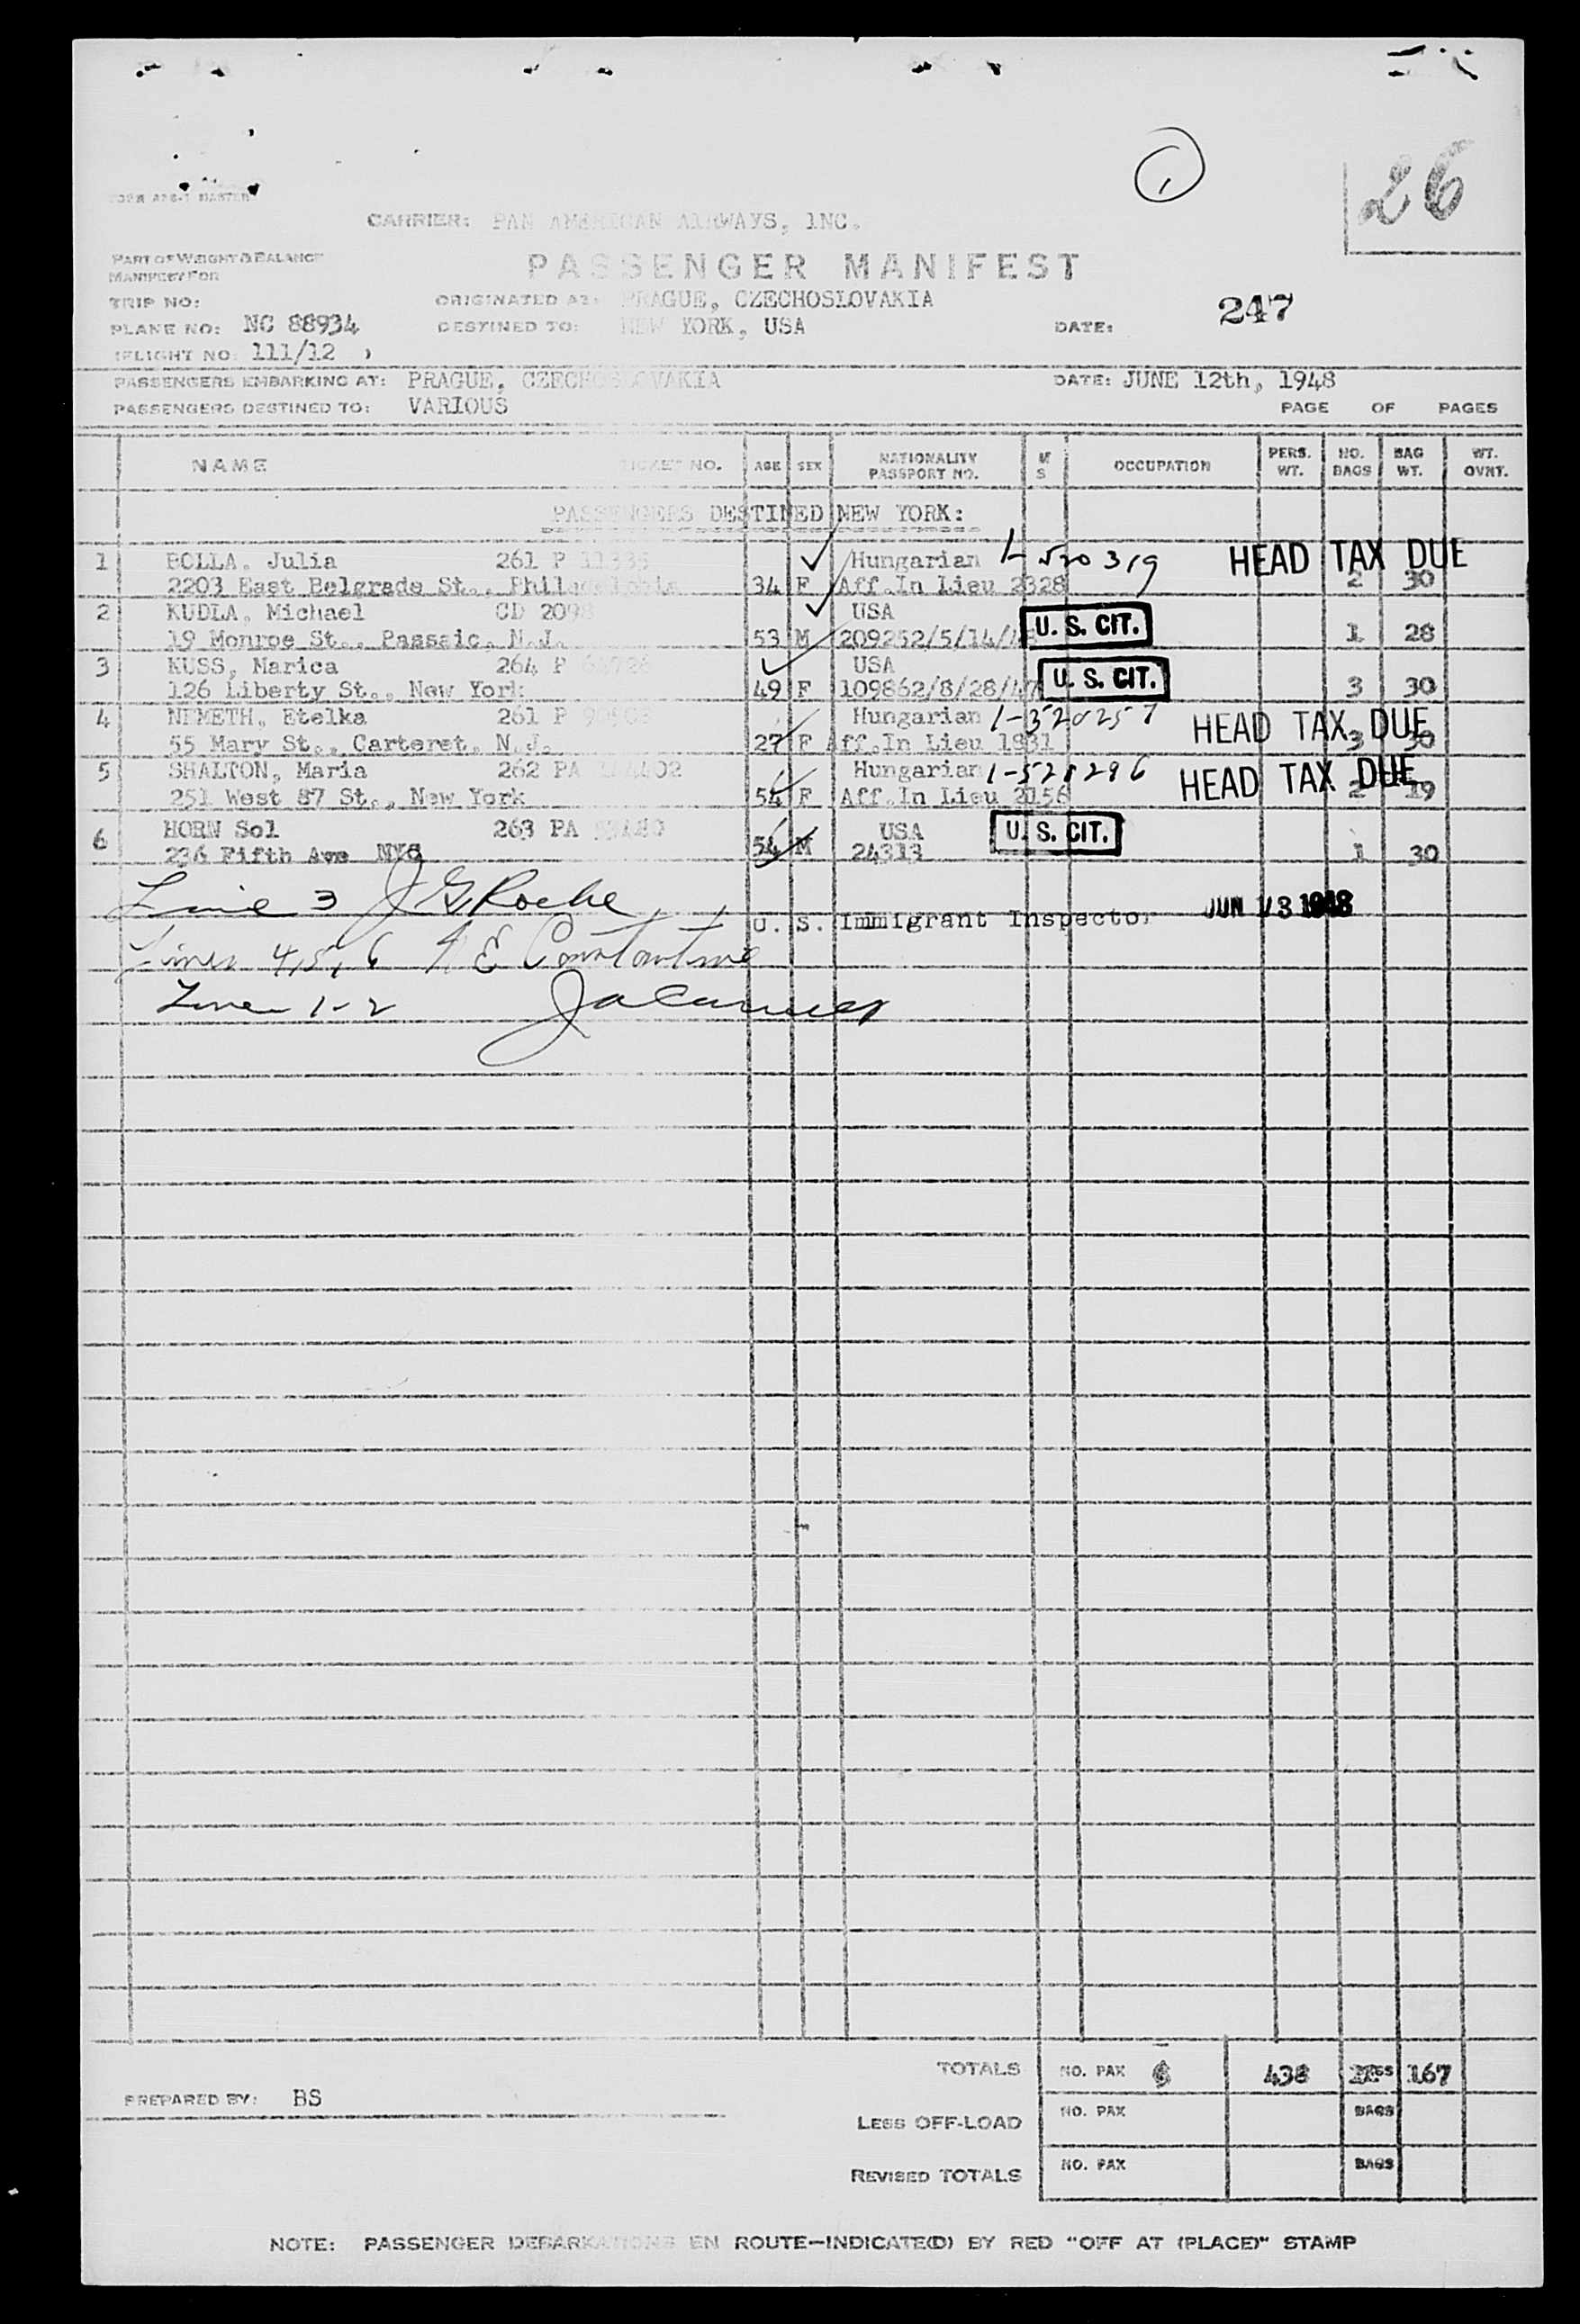 1
26
FORM MASTER
CARRIER: PAN AMERICAN AIRWAYS, INC.
PART OF WEIGHT & BALANCE
MANIFEST FOR
PASSENGER MANIFEST
TRIP NO: ORIGINATED AT: PRAGUE, CZECHOSLOVAKIA
247
PLANE NO: NC 88934 DESTINED TO: NEW YORK, USA DATE:
(FLIGHT NO. 111/12 )
PASSENGERS EMBARKING AT: PRAGUE, CZECHOSLOVAKIA DATE: JUNE 12th, 1948
PASSENGERS DESTINED TO: VARIOUS PAGE OF PAGES
NAME TICKET NO. AGE SEX NATIONALITY PASSPORT NO. M S OCCUPATION PERS. WT. NO. BAGS BAG WT. WT. OVNT.
PASSENGERS DESTINED NEW YORK:
1 BOLLA, Julia 261 P Hungarian 1-520319 HEAD TAX DUE
2203 East Belgrade St., Philadelphia 34 F Aff.In Lieu 2328 2 30
2 KUDLA, Michael CD 2098 USA U. S. CIT.
19 Monroe St., Passaic, N.J. 53 M 209252/5/14/48 1 28
3 KUSS, Marica 264 P USA U. S. CIT.
126 Liberty St., New York 49 F 109862/8/28/47 3 30
4 NEMETH, Etelka 261 P Hungarian 1-520257 HEAD TAX DUE
55 Mary St., Carteret, N.J. 27 F Aff.In Lieu 1931 3 30
5 SHALTON, Maria 262 PA Hungarian 1-528296 HEAD TAX DUE
251 West 87 St., New York 54 F Aff.In Lieu 2156 2 19
6 HORN Sol 263 PA USA U. S. CIT.
236 Fifth Ave NYC 54 M 24313 1 30
Line 3 J G Roche
U. S. Immigrant Inspector JUN 13 1948
Lines 4, 5, 6 E Constantine
Line 1-2
TOTALS NO. PAX 6 438 BAGS 167
PREPARED BY: BS
LESS OFF-LOAD NO. PAX BAGS
REVISED TOTALS NO. PAX BAGS
NOTE: PASSENGER DEBARKATIONS EN ROUTE—INDICATE(D) BY RED "OFF AT (PLACE)" STAMP